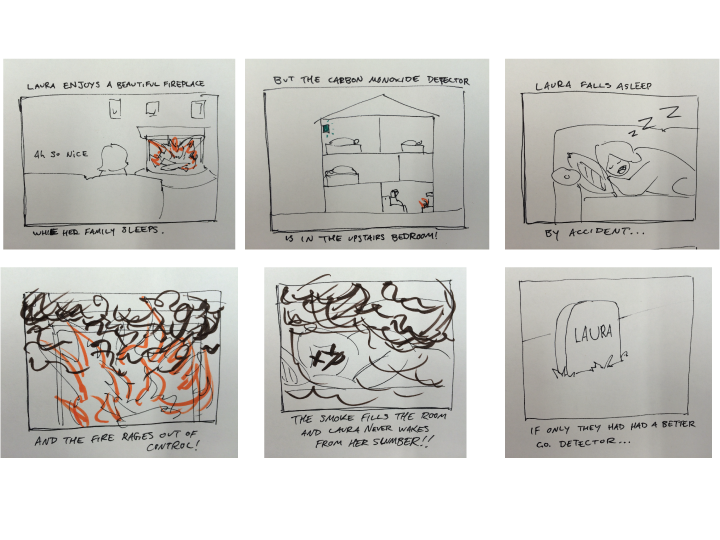 LAURA ENJOYS A BEAUTIFUL FIREPLACE
Ah So NiCE
WHILE HER FAMILY SLEEPS.
BUT THE CARBON MONOXIDE DETECTOR
IS IN THE UPSTAIRS BEDROOM!
LAURA FALLS ASLEEP
Z Z Z
BY ACCIDENT...
AND THE FIRE RAGES OUT OF
CONTROL!
THE SMOKE FILLS THE ROOM
AND LAURA NEVER WAKES
FROM HER SLUMBER!!
LAURA
IF ONLY THEY HAD HAD A BETTER
CO. DETECTOR...